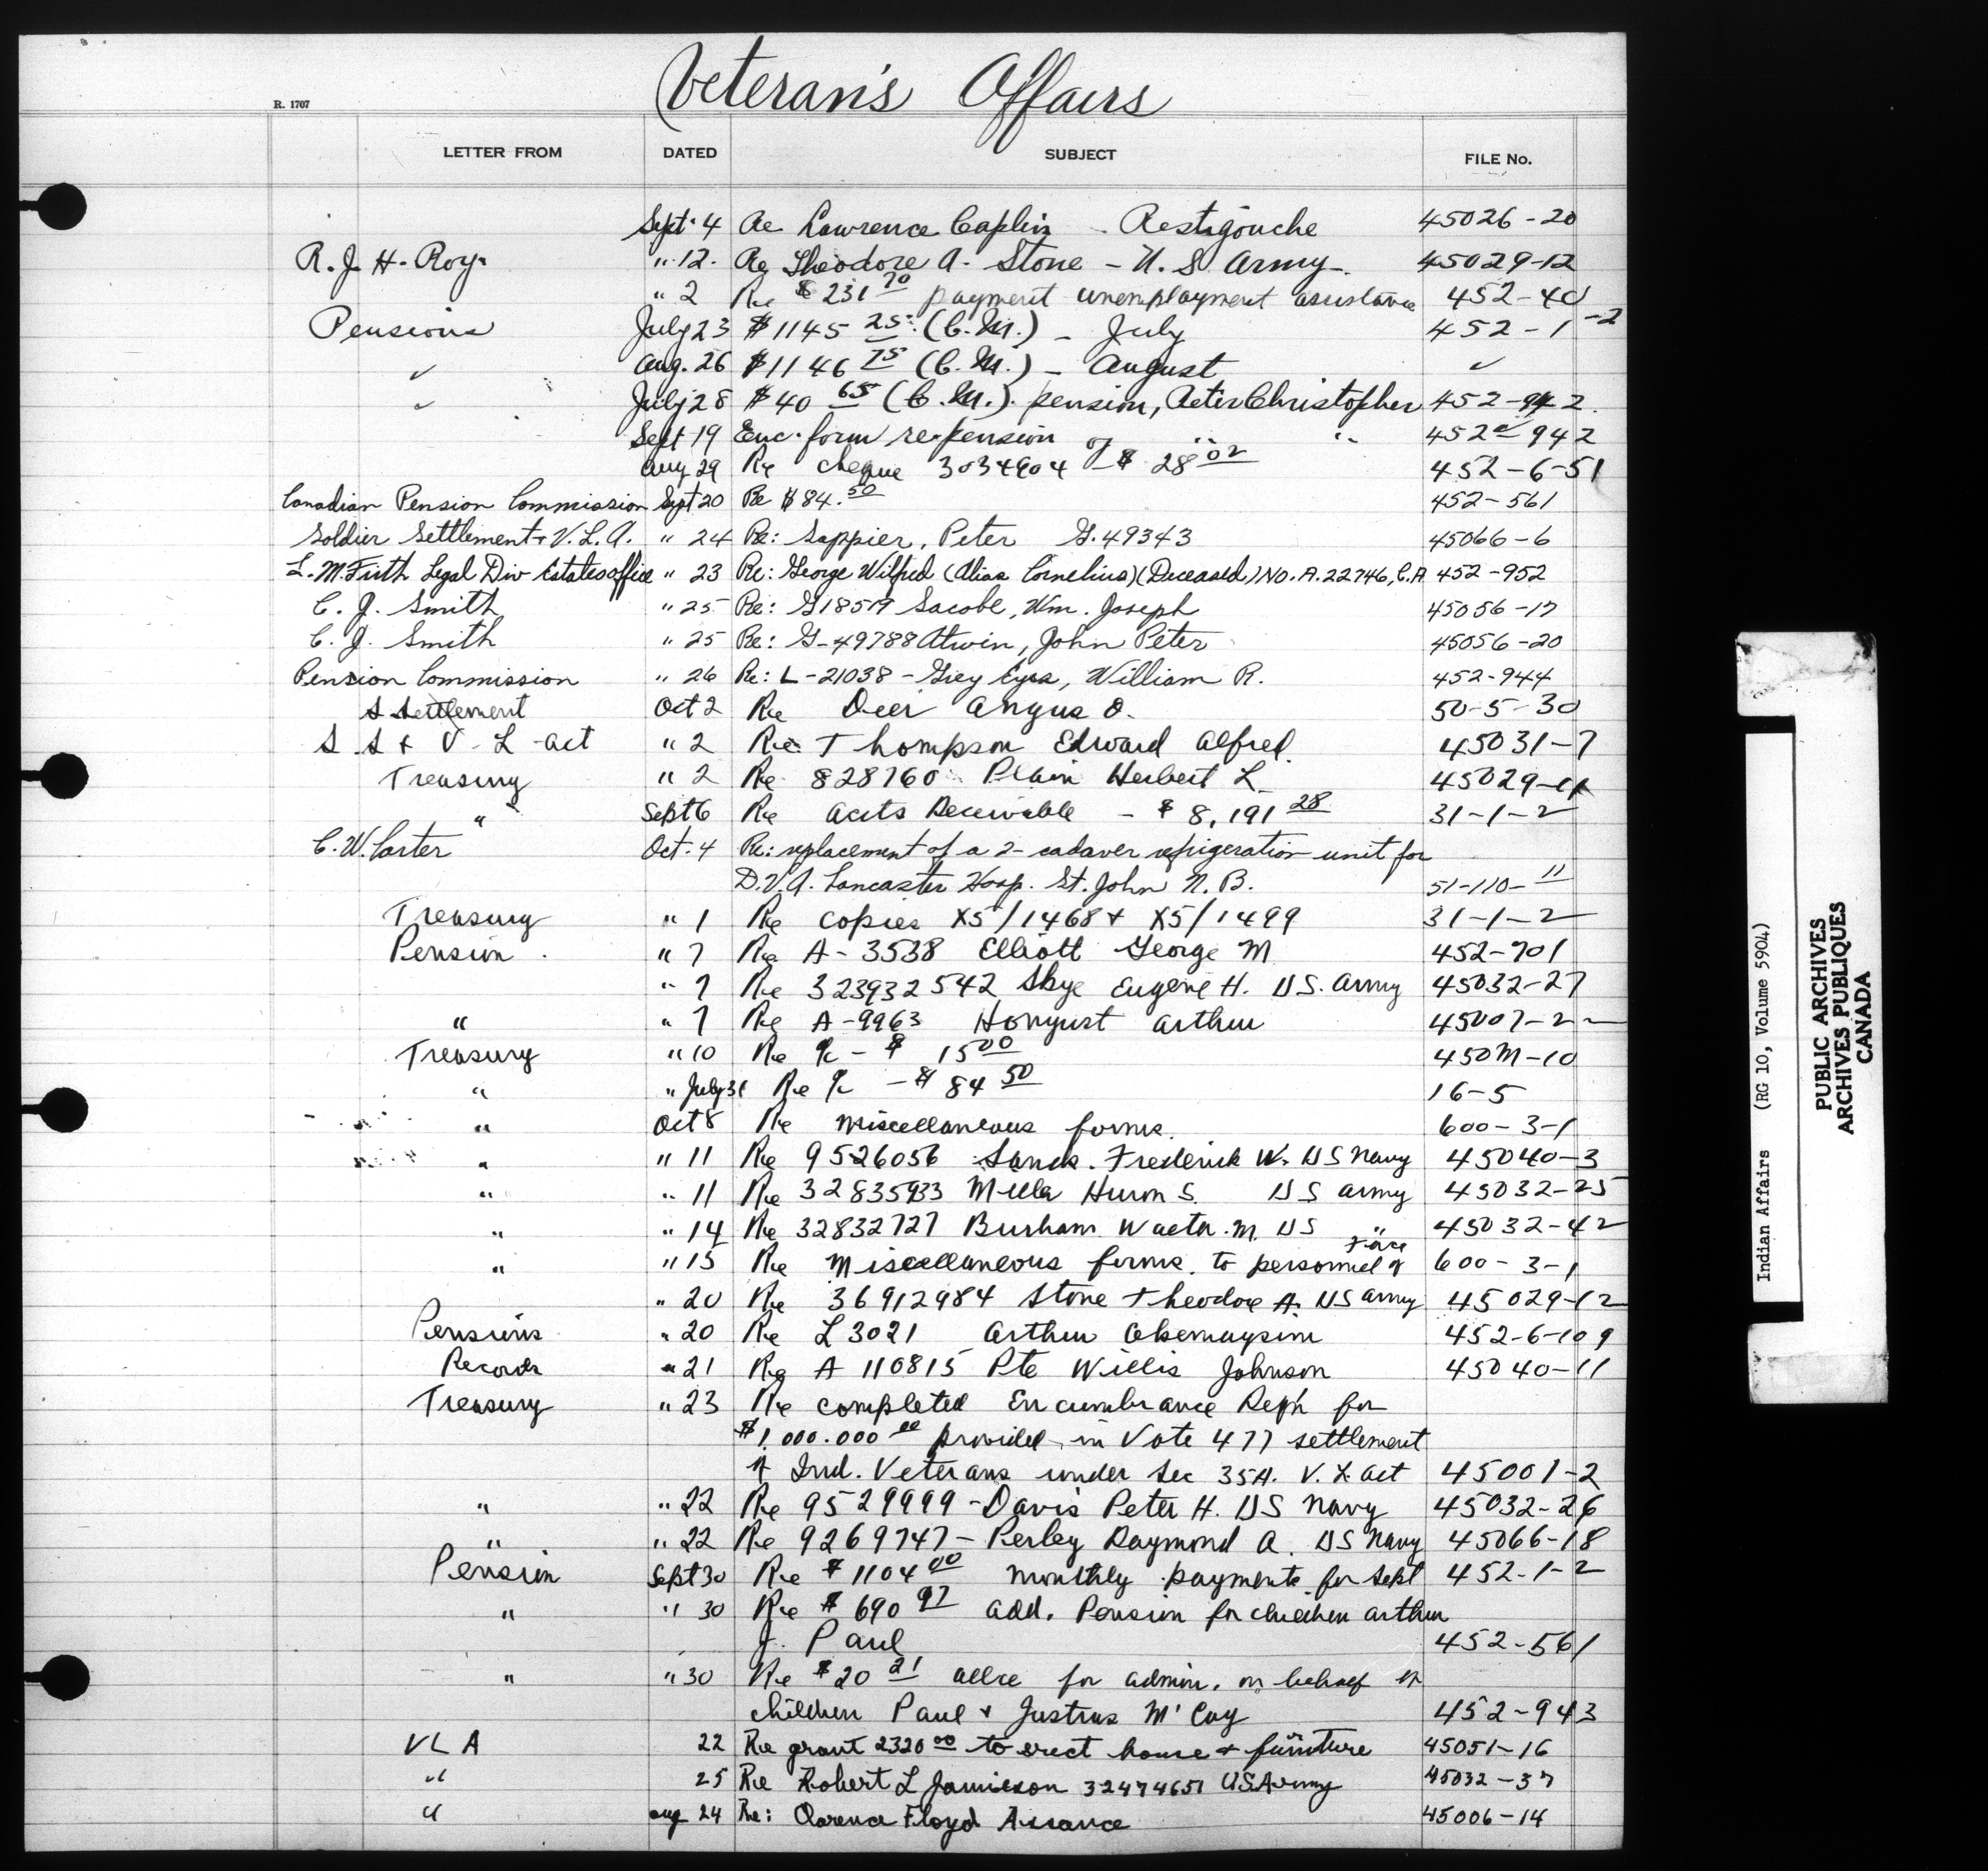 Veteran's Affairs
R. 1707
LETTER FROM DATED SUBJECT FILE No.
Sept. 4 Re Lawrence Caplin - Restigouche 45026-20
R. J. H. Roy. " 12. Re Theodore A. Stone - U.S. Army. 45029-12
" 2 Re $231 70 payment unemployment assistance 452-40
Pensions July 23 $1145 25 (C.M.) - July 452-1-2
✓ Aug. 26 $1146 75 (C.M.) - August ✓
✓ July 28 $40 65 (C.M.) pension, Peter Christopher 452-942.
Sept 19 Enc. form re pension " " 452-942
Aug 29 Re cheque 3034904 of $28 02 452-6-51
Canadian Pension Commission Sept 20 Re $84. 50 452-561
Soldier Settlement & V.L.A. " 24 Re: Sappier, Peter G.49343 45066-6
L. M. Firth Legal Div Estates office " 23 Re: George Wilfred (Alias Cornelius) (Deceased) No. A.22746, C.A. 452-952
C. J. Smith " 25 Re: G18519 Sacobe, Wm. Joseph 45056-17
C. J. Smith " 25 Re: G-49788 Atwin, John Peter 45056-20
Pension Commission " 26 Re: L-21038 - Grey Eyes, William R. 452-944
S Settlement Oct 2 Re Deer Angus O. 50-5-30
S. S & V-L-act " 2 Re Thompson Edward Alfred. 45031-7
Treasury " 2 Re 828760 Plain Herbert L 45029-11
" Sept 6 Re Accts Receivable - $8,191 28 31-1-2
C. W. Carter Oct. 4 Re: replacement of a 2-cadaver refrigeration unit for
D.V.A. Lancaster Hosp. St. John N.B. 51-110-11
Treasury " 1 Re copies X5/1468 & X5/1499 31-1-2
Pension. " 7 Re A-3538 Elliott George M 452-701
" 7 Re 323932542 Skye Eugene H. US. Army 45032-27
" " 7 Re A-9963 Honyust Arthur 45007-2
Treasury " 10 Re - $ 15 00 450M-10
" " July 31 Re - $84 50 16-5
" Oct 8 Re miscellaneous forms. 600-3-1
" " 11 Re 9526056 Sands. Frederick W. US Navy 45040-3
" " 11 Re 32835933 Miller Huron S. US Army 45032-25
" " 14 Re 32832727 Burham Walter. M. US " 45032-42
" " 15 Re Miscellaneous forms. to personnel of Force 600-3-1
" 20 Re 36912984 Stone Theodore A. US Army 45029-12
Pensions " 20 Re L 3021 Arthur 452-6-109
Records " 21 Re A 110815 Pte Willis Johnson 45040-11
Treasury " 23 Re completed Encumbrance Reph for
$1.000.000 00 provided in Vote 477 settlement
of Ind. Veterans under Sec 35A. V. L. Act 45001-2
" " 22 Re 9529999 - Davis Peter H. US Navy 45032-26
" " 22 Re 9269747 - Perley Raymond A. US Navy 45066-18
Pension Sept 30 Re $1104 00 monthly payments for Sept 452-1-2
" " 30 Re $690 97 add. Pension for children Arthur
J. Paul 452-561
" " 30 Re $20 21 allce for admin. on behalf of
children Paul & Justus McCoy 452-943
VLA 22 Re grant 2320 00 to erect house & furniture 45051-16
" 25 Re Robert L Jamieson 32474651 US Army 45032-37
" Aug 24 Re: Clarence Floyd Assance 45006-14
Indian Affairs (RG 10, Volume 5904)
PUBLIC ARCHIVES
ARCHIVES PUBLIQUES
CANADA